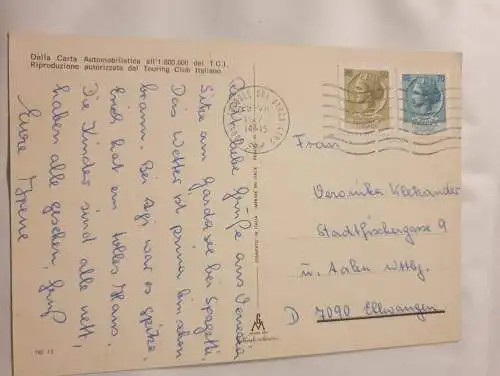 Della Carta Automobilistica all'1:600.000 del T.C.I.
Riproduzione autorizzata dal Touring Club Italiano.
Recht liebe Grüße aus Venedig
Sitze am Gardasee bei Spagetti,
Das Wetter ist prima bin schon
braun. Bei Agi war es spitze,
Erich hat ein tolles Haus.
Die Kinder sind alle nett,
haben alle gesehen, Gruß
Eure Irene
Frau
Veronika
Stadtfischergasse 9
u. Aalen Wttbg.
D 7090 Ellwangen
NO 13